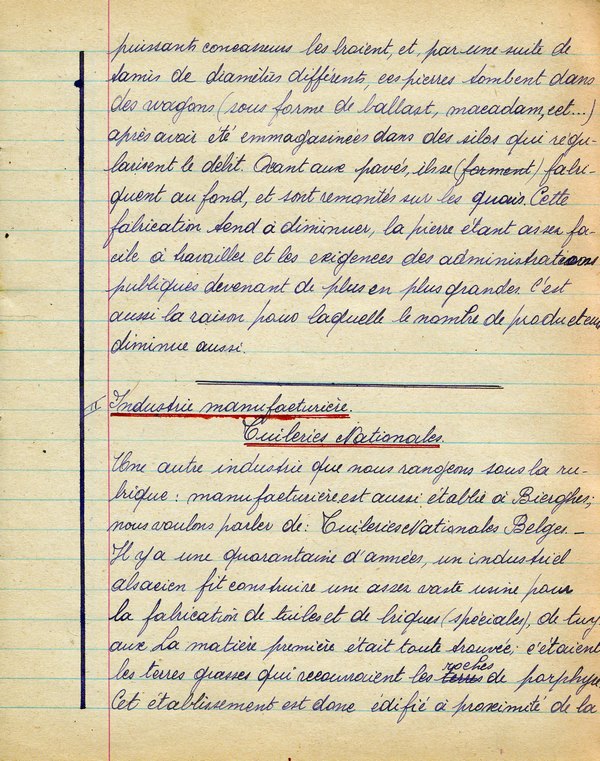 puissants concasseurs les broient, et, par une suite de
tamis de diamètres différents, ces pierres tombent dans
des wagons (sous forme de ballast, macadam, cet....)
après avoir été emmagasinées dans des silos qui régu-
larisent le débit. Quant aux pavés, ils se (forment) fabri-
quent au fond, et sont remontés sur les quais. Cette
fabrication tend à diminuer, la pierre étant assez fa-
cile à travailler et les exigences des administrations
publiques devenant de plus en plus grandes. C'est
aussi la raison pour laquelle le nombre de producteurs
diminue aussi.
II Industrie manufacturière.
Tuileries Nationales.
Une autre industrie que nous rangeons sous la ru-
brique : manufacturière, est aussi établie à Bierghes;
nous voulons parler de: Tuileries Nationales Belges.-
Il y a une quarantaine d'années, un industriel
alsacien fit construire une assez vaste usine pour
la fabrication de tuiles et de briques (spéciales), de tuy
aux La matière première était toute trouvée; c'étaient
les terres grasses qui recouvraient les terres roches de porphyre
Cet établissement est donc édifié à proximité de la